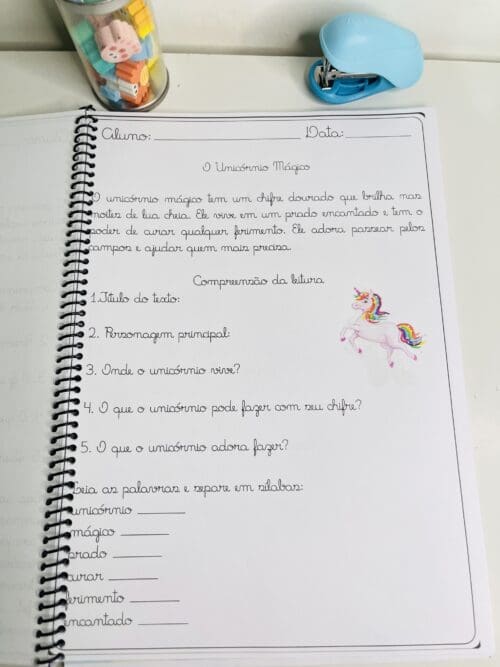 Aluno: Data:
O Unicórnio Mágico
O unicórnio mágico tem um chifre dourado que brilha nas
noites de lua cheia. Ele vive em um prado encantado e tem o
poder de curar qualquer ferimento. Ele adora passear pelos
campos e ajudar quem mais precisa.
Compreensão da leitura
1.Título do texto:
2. Personagem principal:
3. Onde o unicórnio vive?
4. O que o unicórnio pode fazer com seu chifre?
5. O que o unicórnio adora fazer?
Leia as palavras e separe em sílabas:
unicórnio
mágico
prado
curar
ferimento
encantado